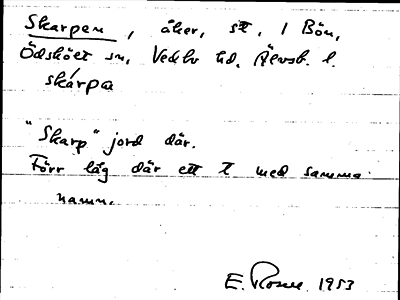 Skarpen, åker, st, 1 Bön,
Ödsköts sn, Vedbo hd. Älvsb. l.
skárpa
"Skarp" jord där.
Förr låg där ett t med samma
namn.
E. Rosell 1953